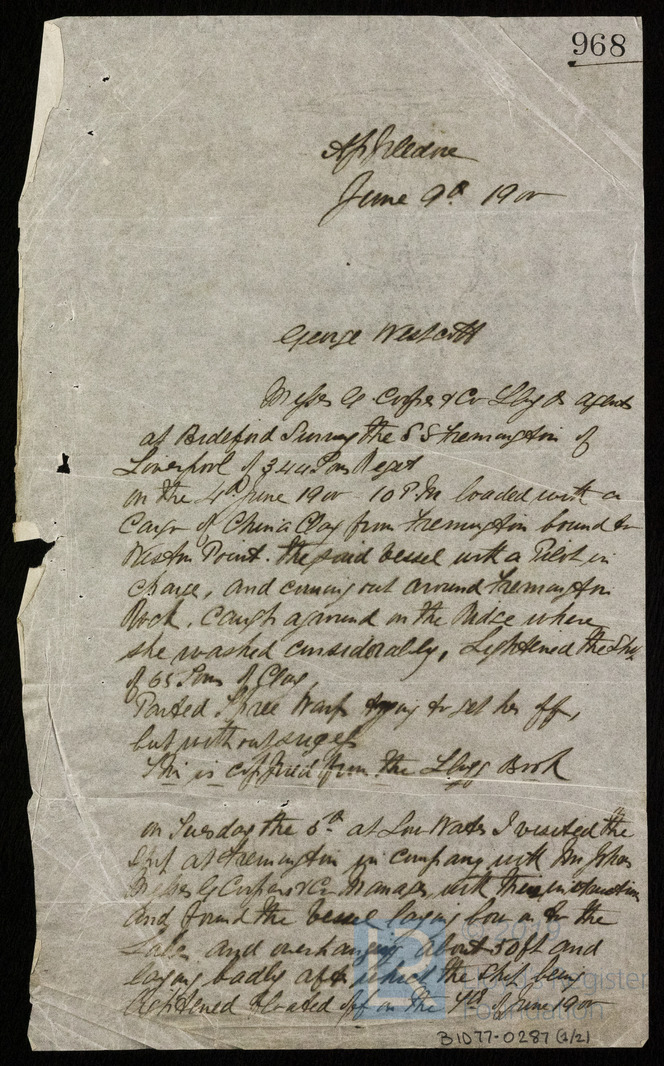 968
Appledore
June 9th 1900
George Westcott
Messrs G Cooper & Co Lloyds agents
at Bideford Survey the SS Fremington of
Liverpool of 344 Tons Regst
on the 4th June 1900 10 P.M loaded with a
Cargo of China Clay from Fremington bound to
Weston Point. the said vessel with a Pilot in
charge, and coming out around Fremington
Rock. Caught aground on the Ridge where
she washed considerably, Lightened the Ship
of 65 Tons of Clay,
Parted Three Warps trying to get her off,
but without success
This is coppied from the Logg Book
on Tuesday the 5th at Low Water I visited the
Ship at Fremington in company with Mr John
Messrs G Cooper & Co Manager, with their instruction
and found the vessel laying bow on to the
and overhanging about 50 ft and
laying badly aft which the Ship being
lightened floated off on the 7th of June 1900
© 2019
Lloyd's Register
Foundation
B1077-0287 (1/2)